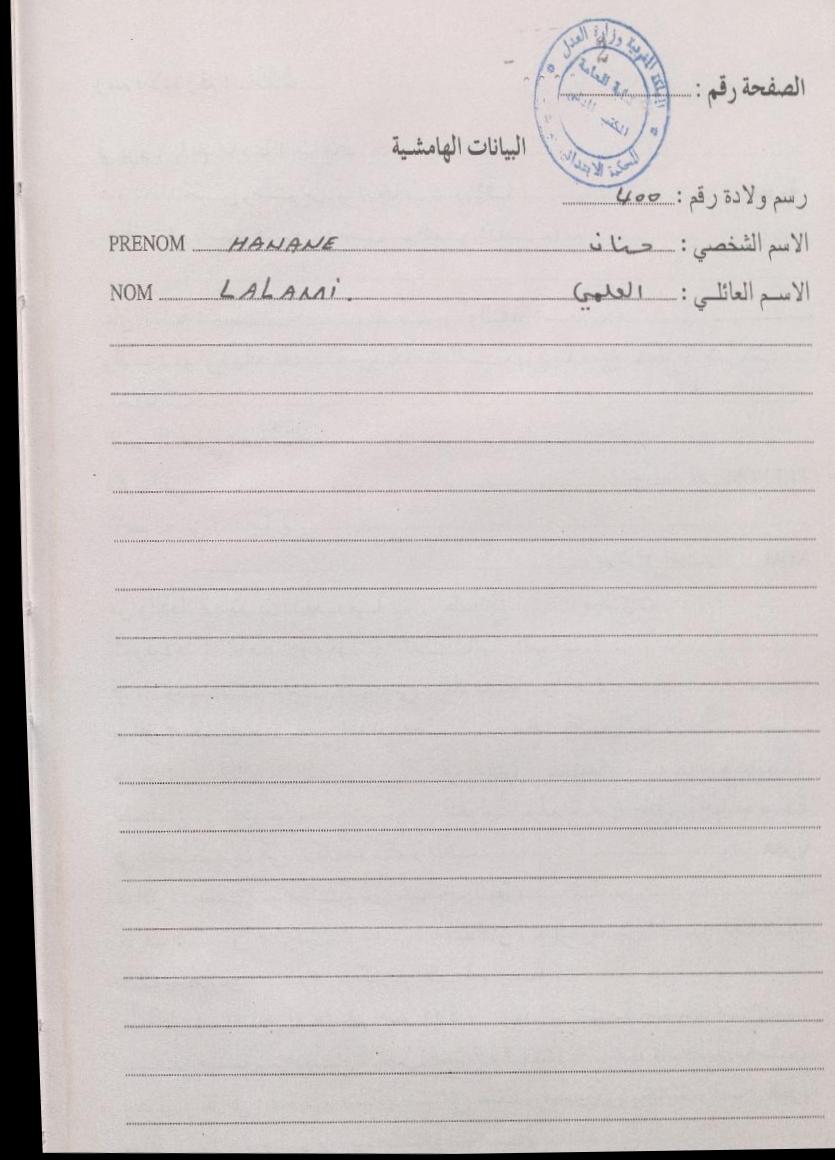 المملكة المغربية وزارة العدل
النيابة العامة
المحكمة الابتدائية
الصفحة رقم : 2
البيانات الهامشية
رسم ولادة رقم : 400
الاسم الشخصي : حنان HANANE PRENOM
الاسم العائلي : العلمي LALAMI. NOM